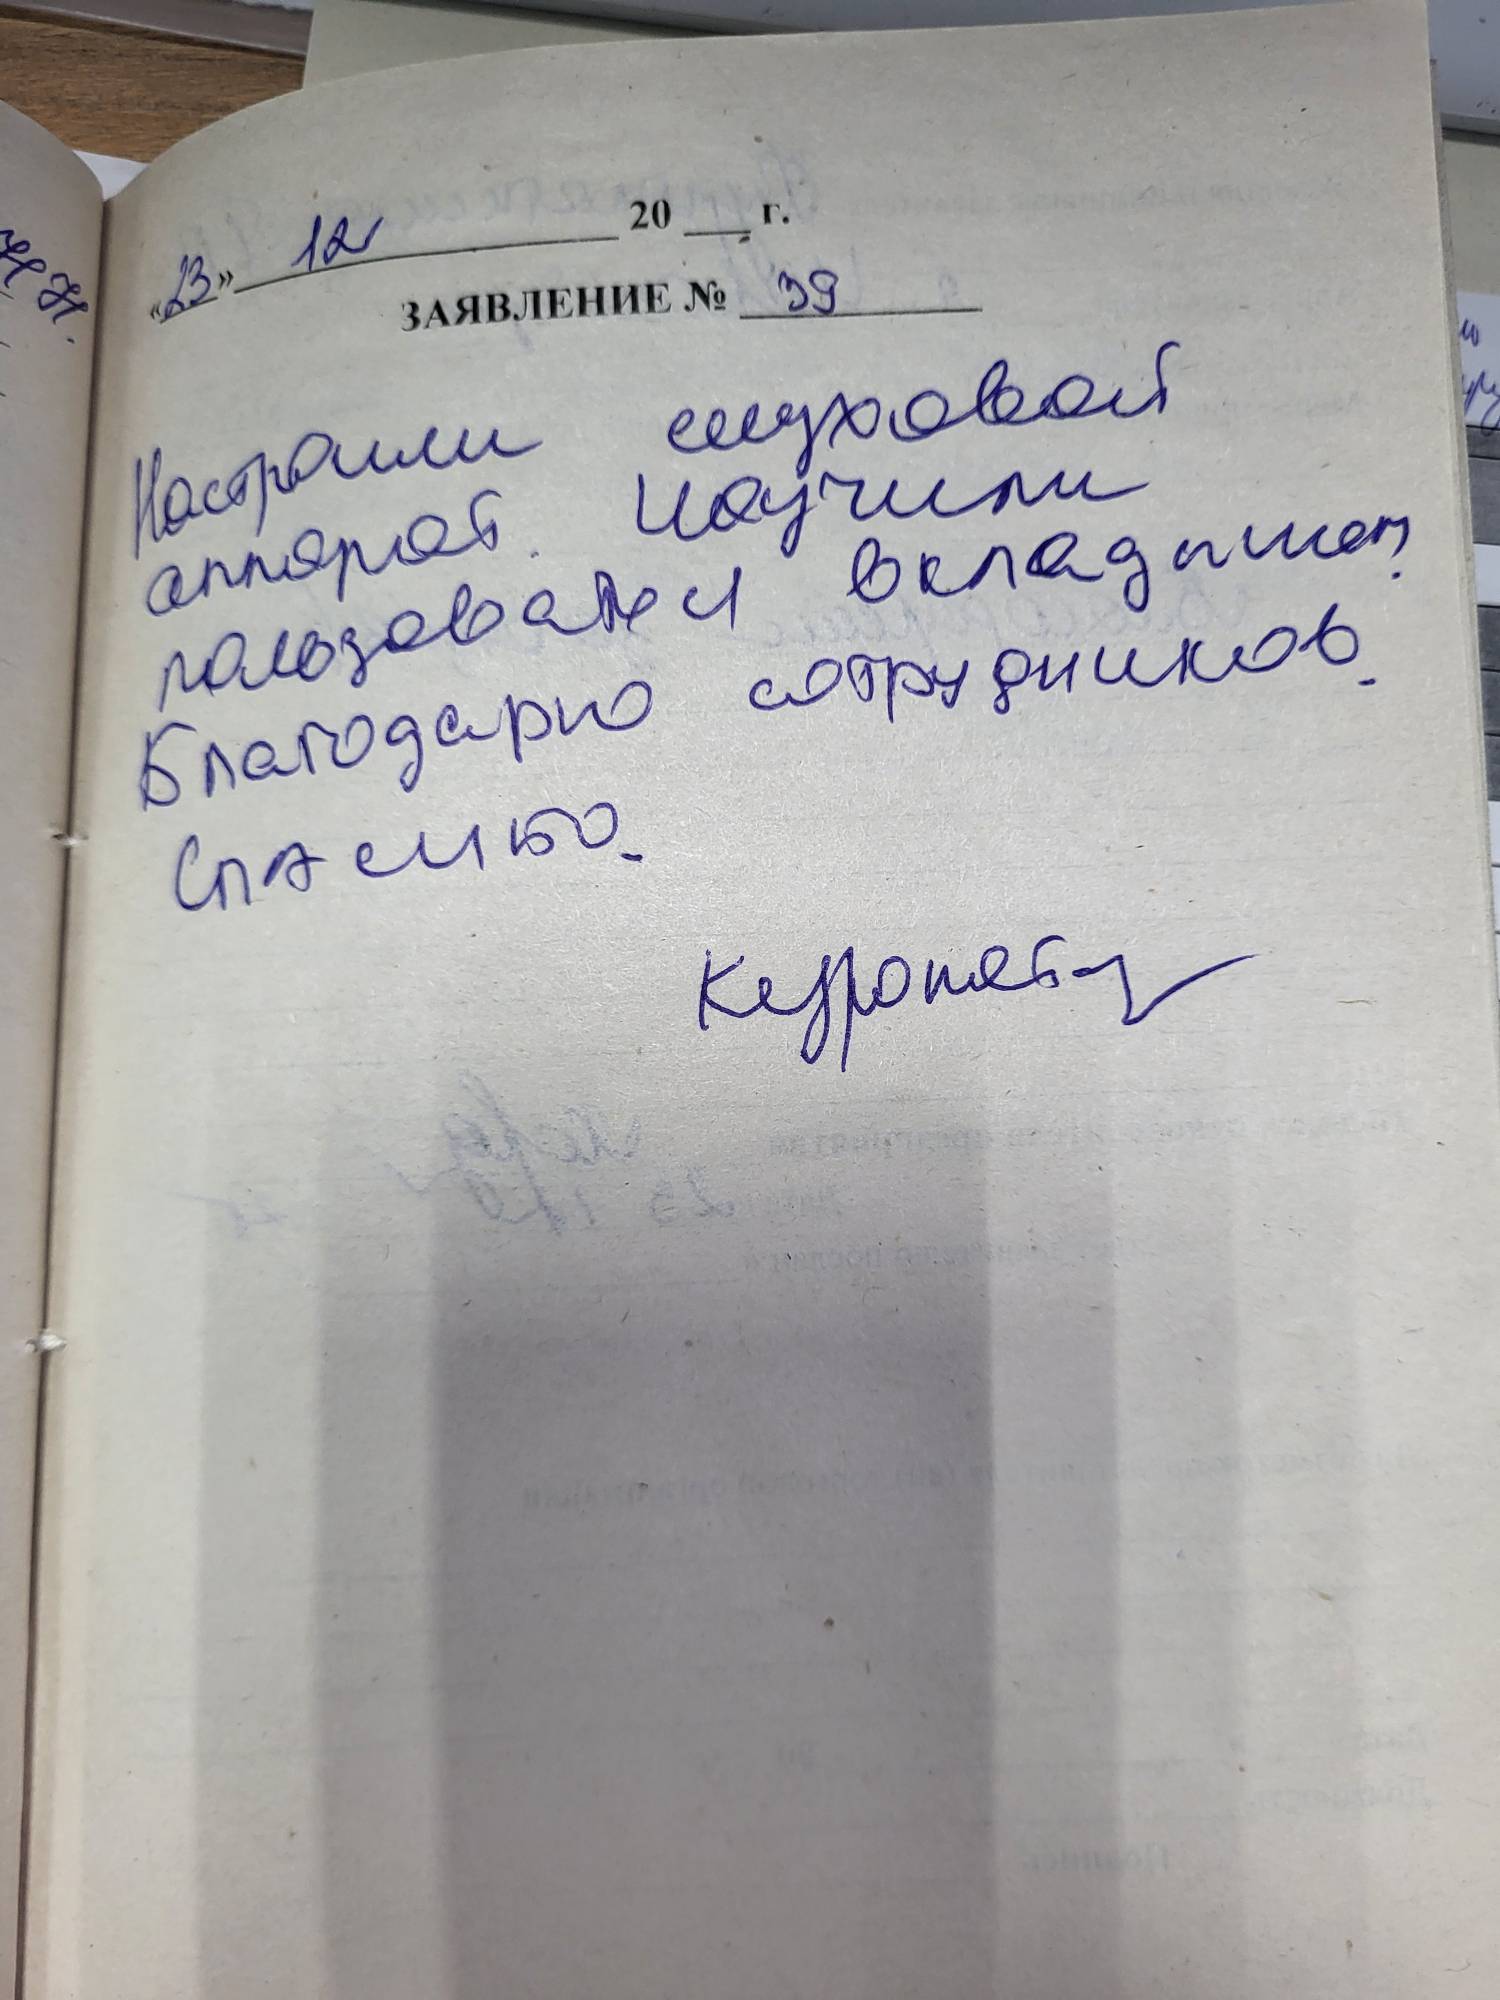 «23» 12 20 г.
ЗАЯВЛЕНИЕ № 39
Настроили слуховой
аппарат. Научили
пользоваться вкладышем.
Благодарю сотрудников.
Спасибо.